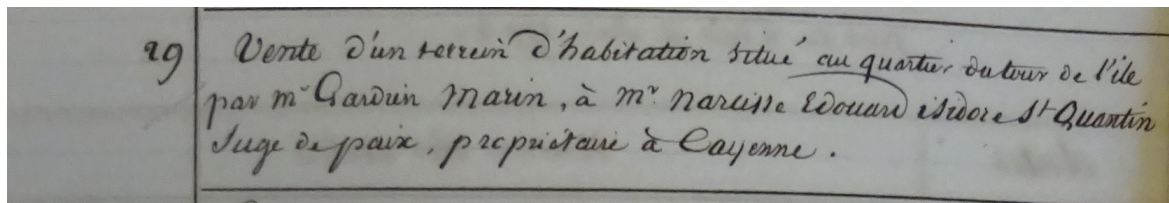 29 Vente d'un terrein d'habitation situé au quartier du tour de l'ile
par mr Garduin Marin, à mr. narcisse Edouard isidore St Quantin
Juge de paix, propriétaire à Cayenne.